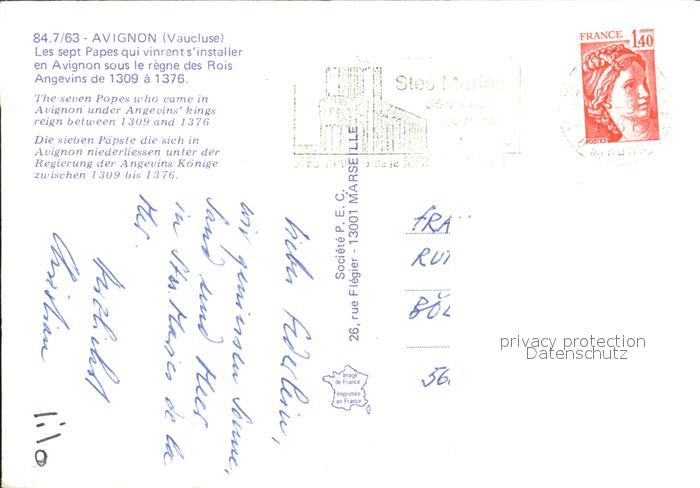 84.7/63 - AVIGNON (Vaucluse)
Les sept Papes qui vinrent s'installer
en Avignon sous le règne des Rois
Angevins de 1309 à 1376.
The seven Popes who came in
Avignon under Angevins' kings
reign between 1309 and 1376
Die sieben Päpste die sich in
Avignon niederliessen unter der
Regierung der Angevins Könige
zwischen 1309 bis 1376.
Stes Maries
FRANCE
1,40
POSTES
Société P. E. C.
26, rue Flégier - 13001 MARSEILLE
Image
de France
Imprimée
en France
wir geniessen Sonne,
Sand und Meer
in Stes. Maries de la
Mer.
Christian
FRA
RUT
BÖL
56
privacy protection
Datenschutz